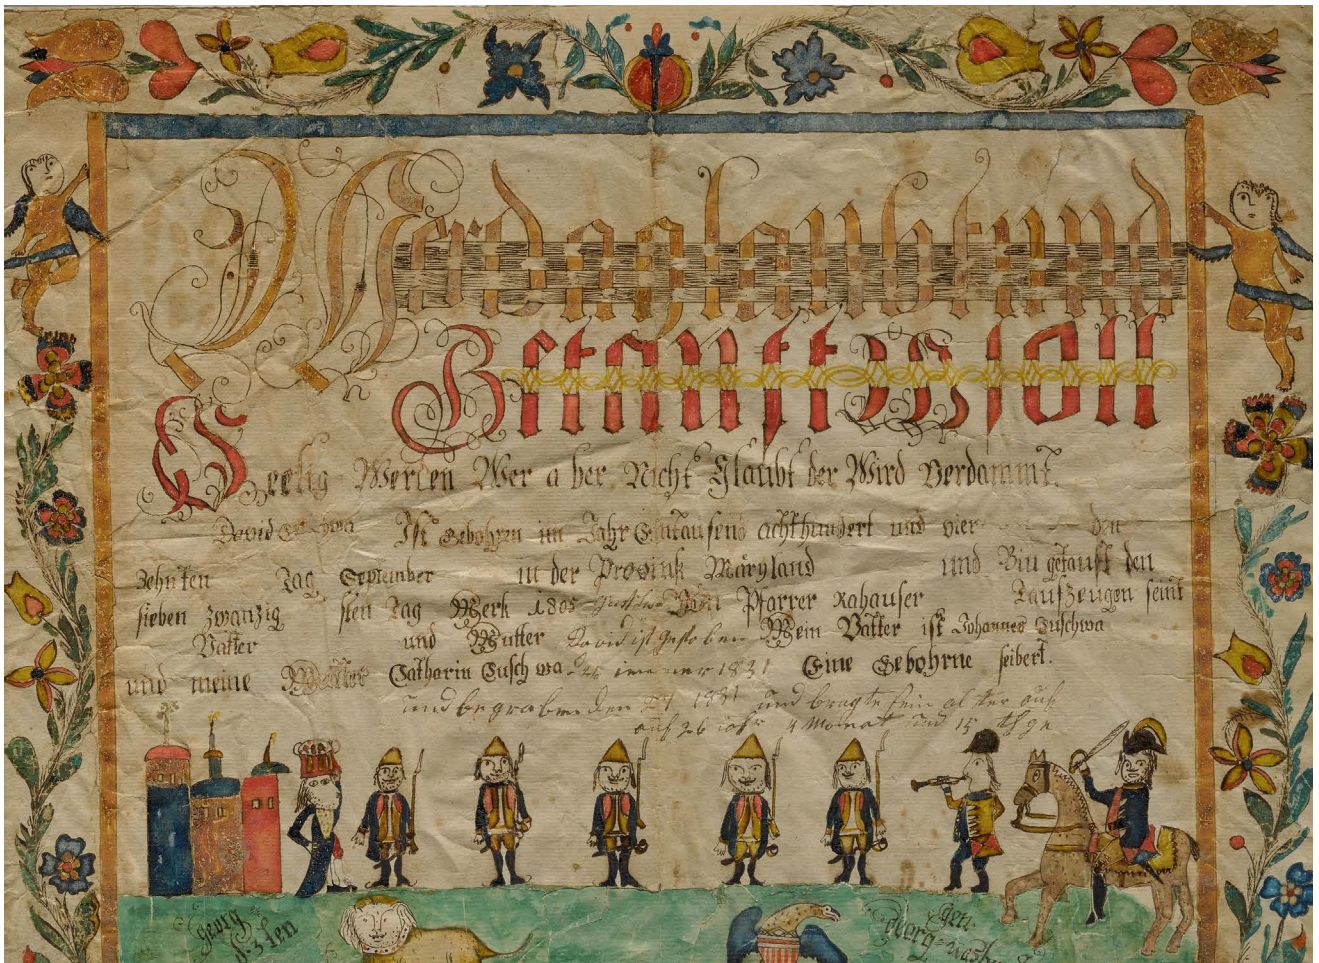 Wer da glaubet und
Getauft W soll
Seelig Werden Wer a ber Nicht Glaubt der Wird Verdammt.
David Ist Gebohren im Jahr Eintausend achthundert und vier den
Zehnten Tag September in der Provink Maryland und Bin getauft den
sieben zwanzig sten Tag Merk 1805 Pfarrer Rahauser Taufzeugen seint
Vatter und Mutter David ist gestorben Mein Vatter ist Johannes Cuschwa
und meine Mutter Catharin Cusch wa 1831 Eine Gebohrne seibert.
und begraben den 1831 und bragte sein al ter auf
auf 26 iahr 4 Monat und 15 thge
Georg
Gen
georg